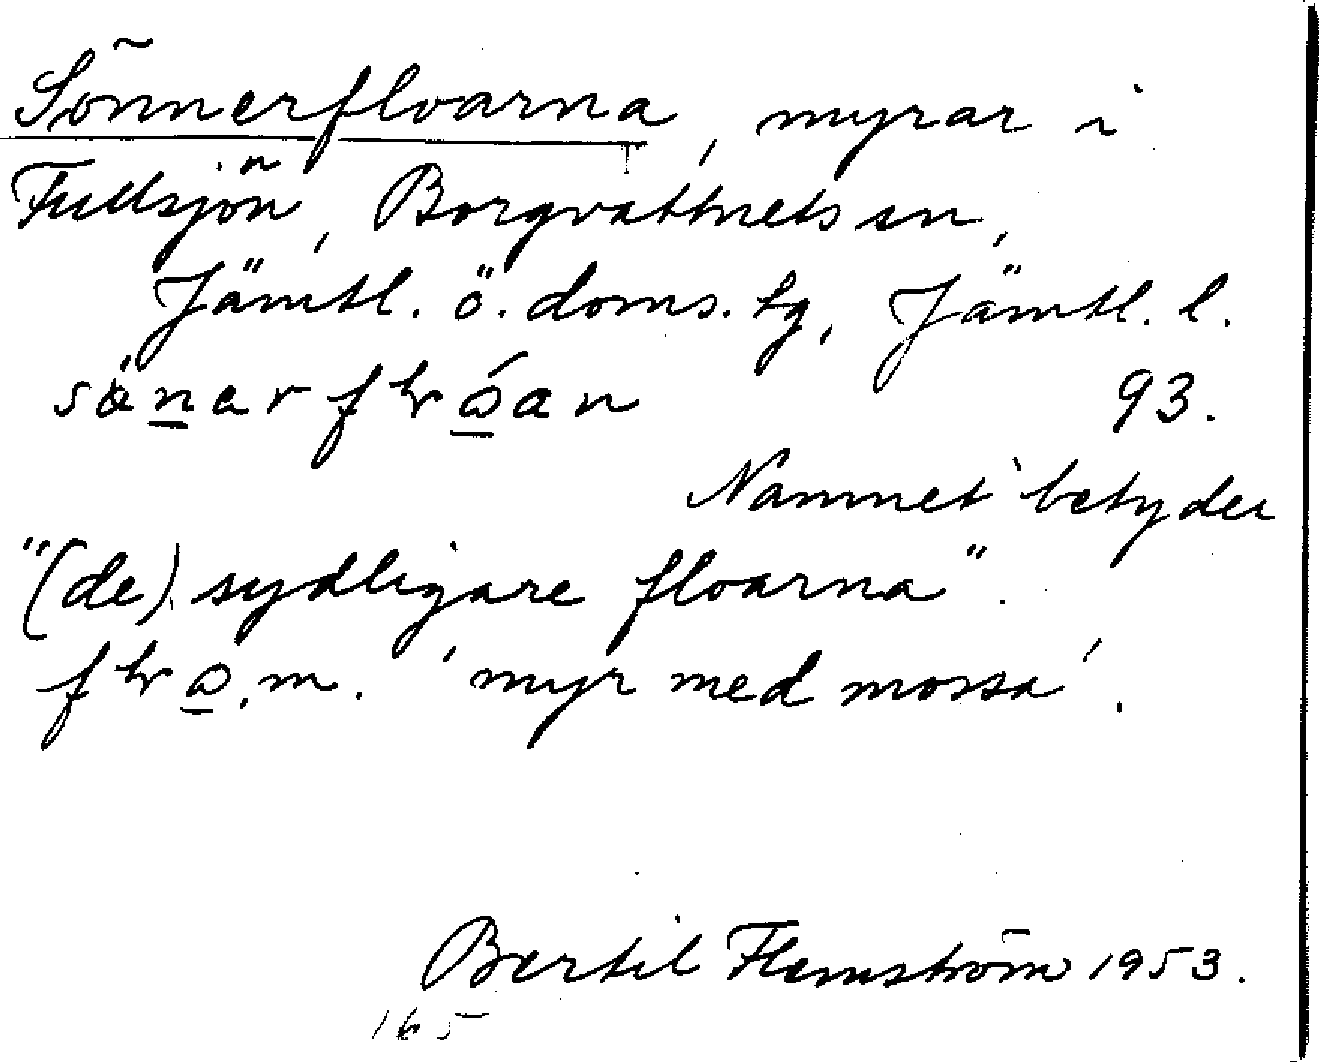 Sönnerfloarna, myrar i
Fullsjön, Borgvattnets sn,
Jämtl. ö. doms. tg, Jämtl. l.
93.
Namnet betyder
"(de) sydligare floarna".
m. 'myr med mossa'.
Bertil Flemström 1953.
165